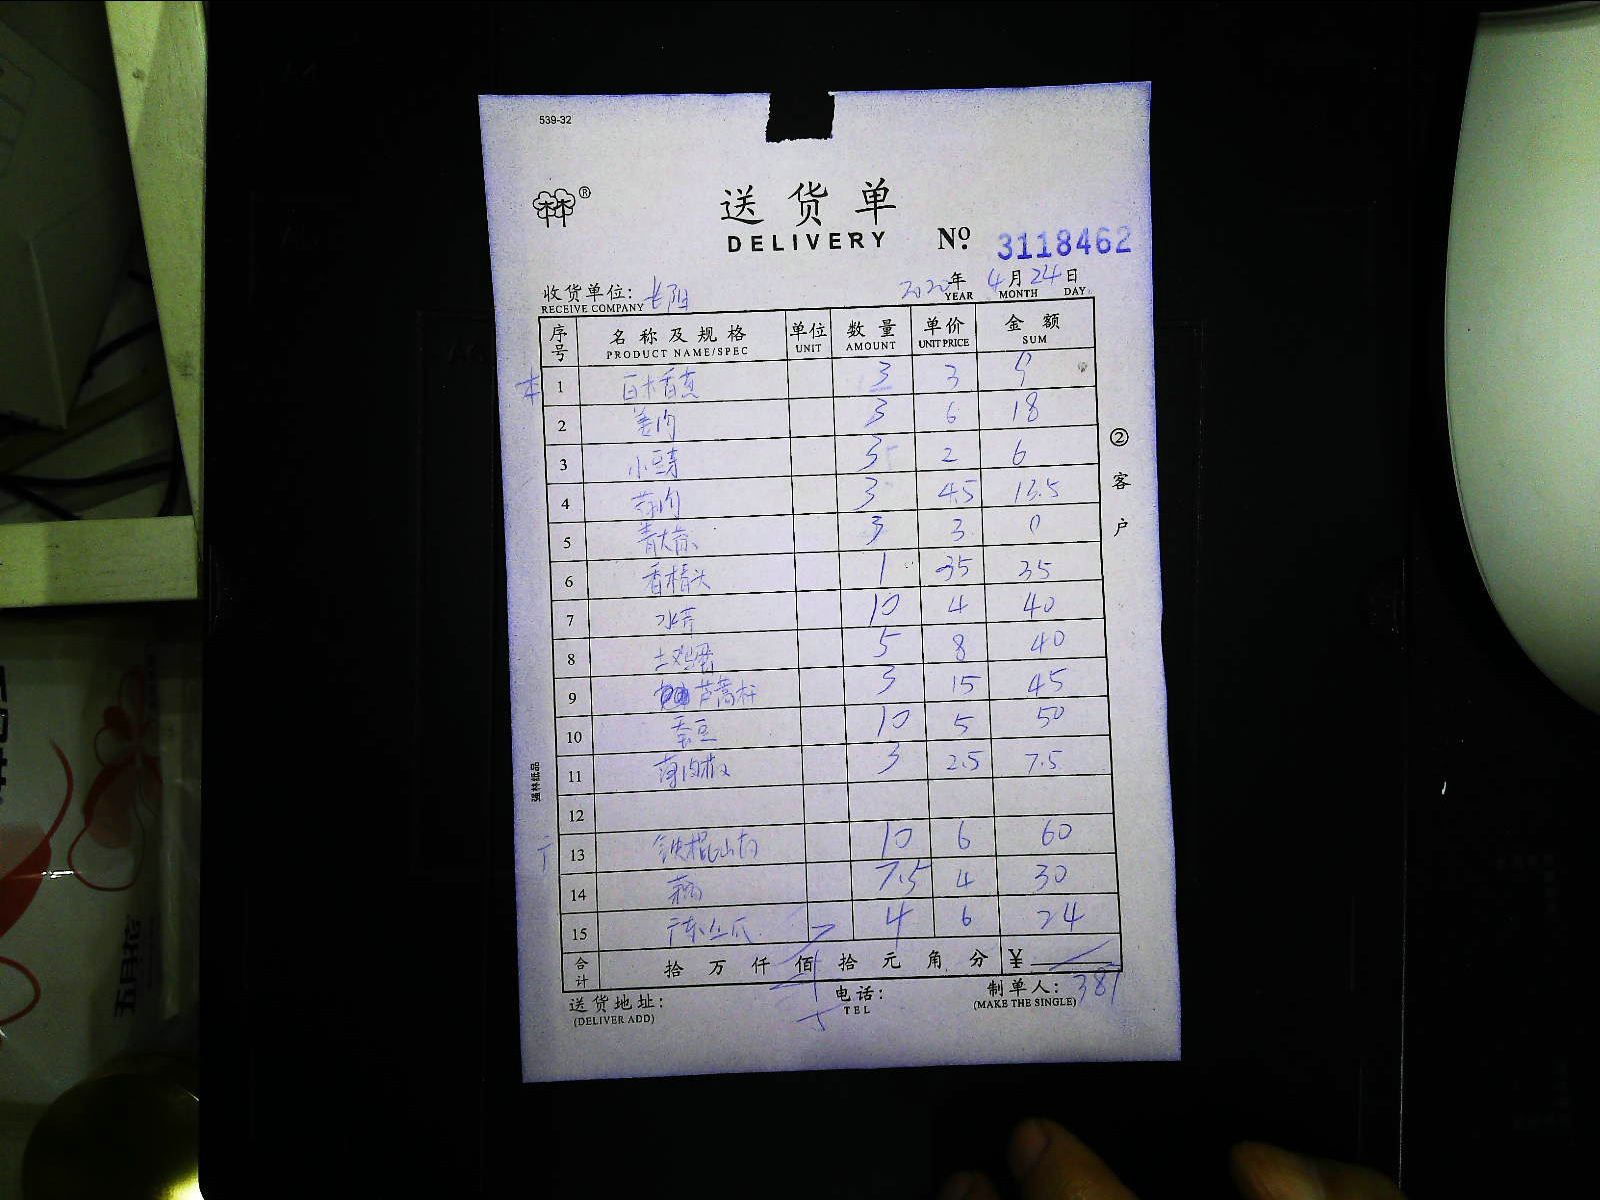 539-32
林®
送货单
DELIVERY № 3118462
收货单位: 长阳 2020年 4月 24日
RECEIVE COMPANY YEAR MONTH DAY
序号 名称及规格 单位 数量 单价 金额
PRODUCT NAME/SPEC UNIT AMOUNT UNIT PRICE SUM
1 3 3 9
2 姜肉 3 6 18
3 小豆芽 3 2 6
4 3 4.5 13.5
5 3 3
6 1 35 35
7 10 4 40
8 土鸡蛋 5 8 40
9 芦蒿杆 3 15 45
10 蚕豆 10 5 50
11 3 2.5 7.5
12
13 铁棍山药 10 6 60
14 7.5 4 30
15 广东丝瓜 4 6 24
合计 拾 万 仟 佰 拾 元 角 分 ¥
381
送货地址: 电话: 制单人:
(DELIVER ADD) TEL (MAKE THE SINGLE)
②客户
强林纸品
五月花